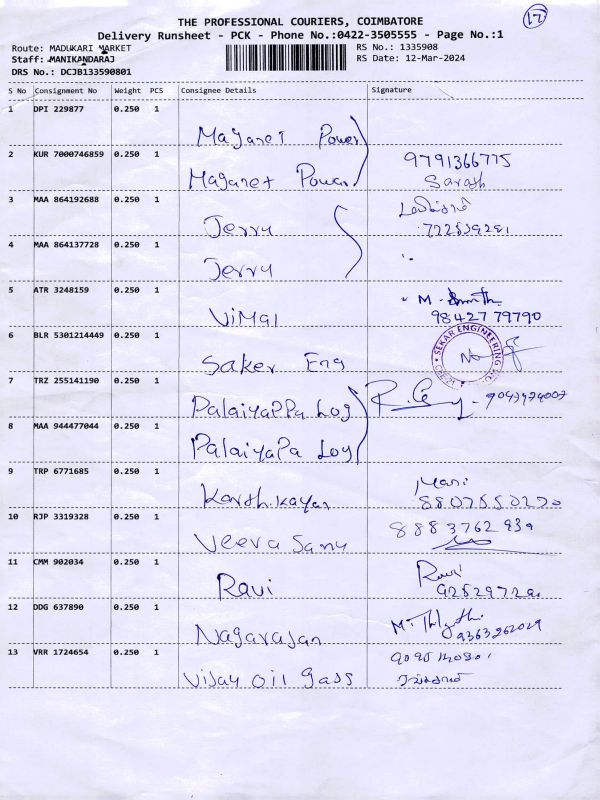 17
THE PROFESSIONAL COURIERS, COIMBATORE
Delivery Runsheet - PCK - Phone No.:0422-3505555 - Page No.:1
Route: MADUKARI MARKET
RS No.: 1335908
Staff: MANIKANDARAJ
RS Date: 12-Mar-2024
DRS No.: DCJB133590801
S No Consignment No Weight PCS Consignee Details Signature
1 DPI 229877 0.250 1 Magaret Power
2 KUR 7000746859 0.250 1 Magaret Power 9791366775
Sarash
3 MAA 864192688 0.250 1 Jerry
4 MAA 864137728 0.250 1 Jerry
5 ATR 3248159 0.250 1 ViMal M.
98427 79790
6 BLR 5301214449 0.250 1 Saker Eng SEKAR ENGINEERING
7 TRZ 255141190 0.250 1 PalaiyaPPa Log
8 MAA 944477044 0.250 1 PalaiyaPa Log
9 TRP 6771685 0.250 1 Karthikayan Mari
10 RJP 3319328 0.250 1 Veera Samy 8883762 939
11 CMM 902034 0.250 1 Ravi Ravi
12 DDG 637890 0.250 1 Nagarajan
13 VRR 1724654 0.250 1 Vijay oil gass